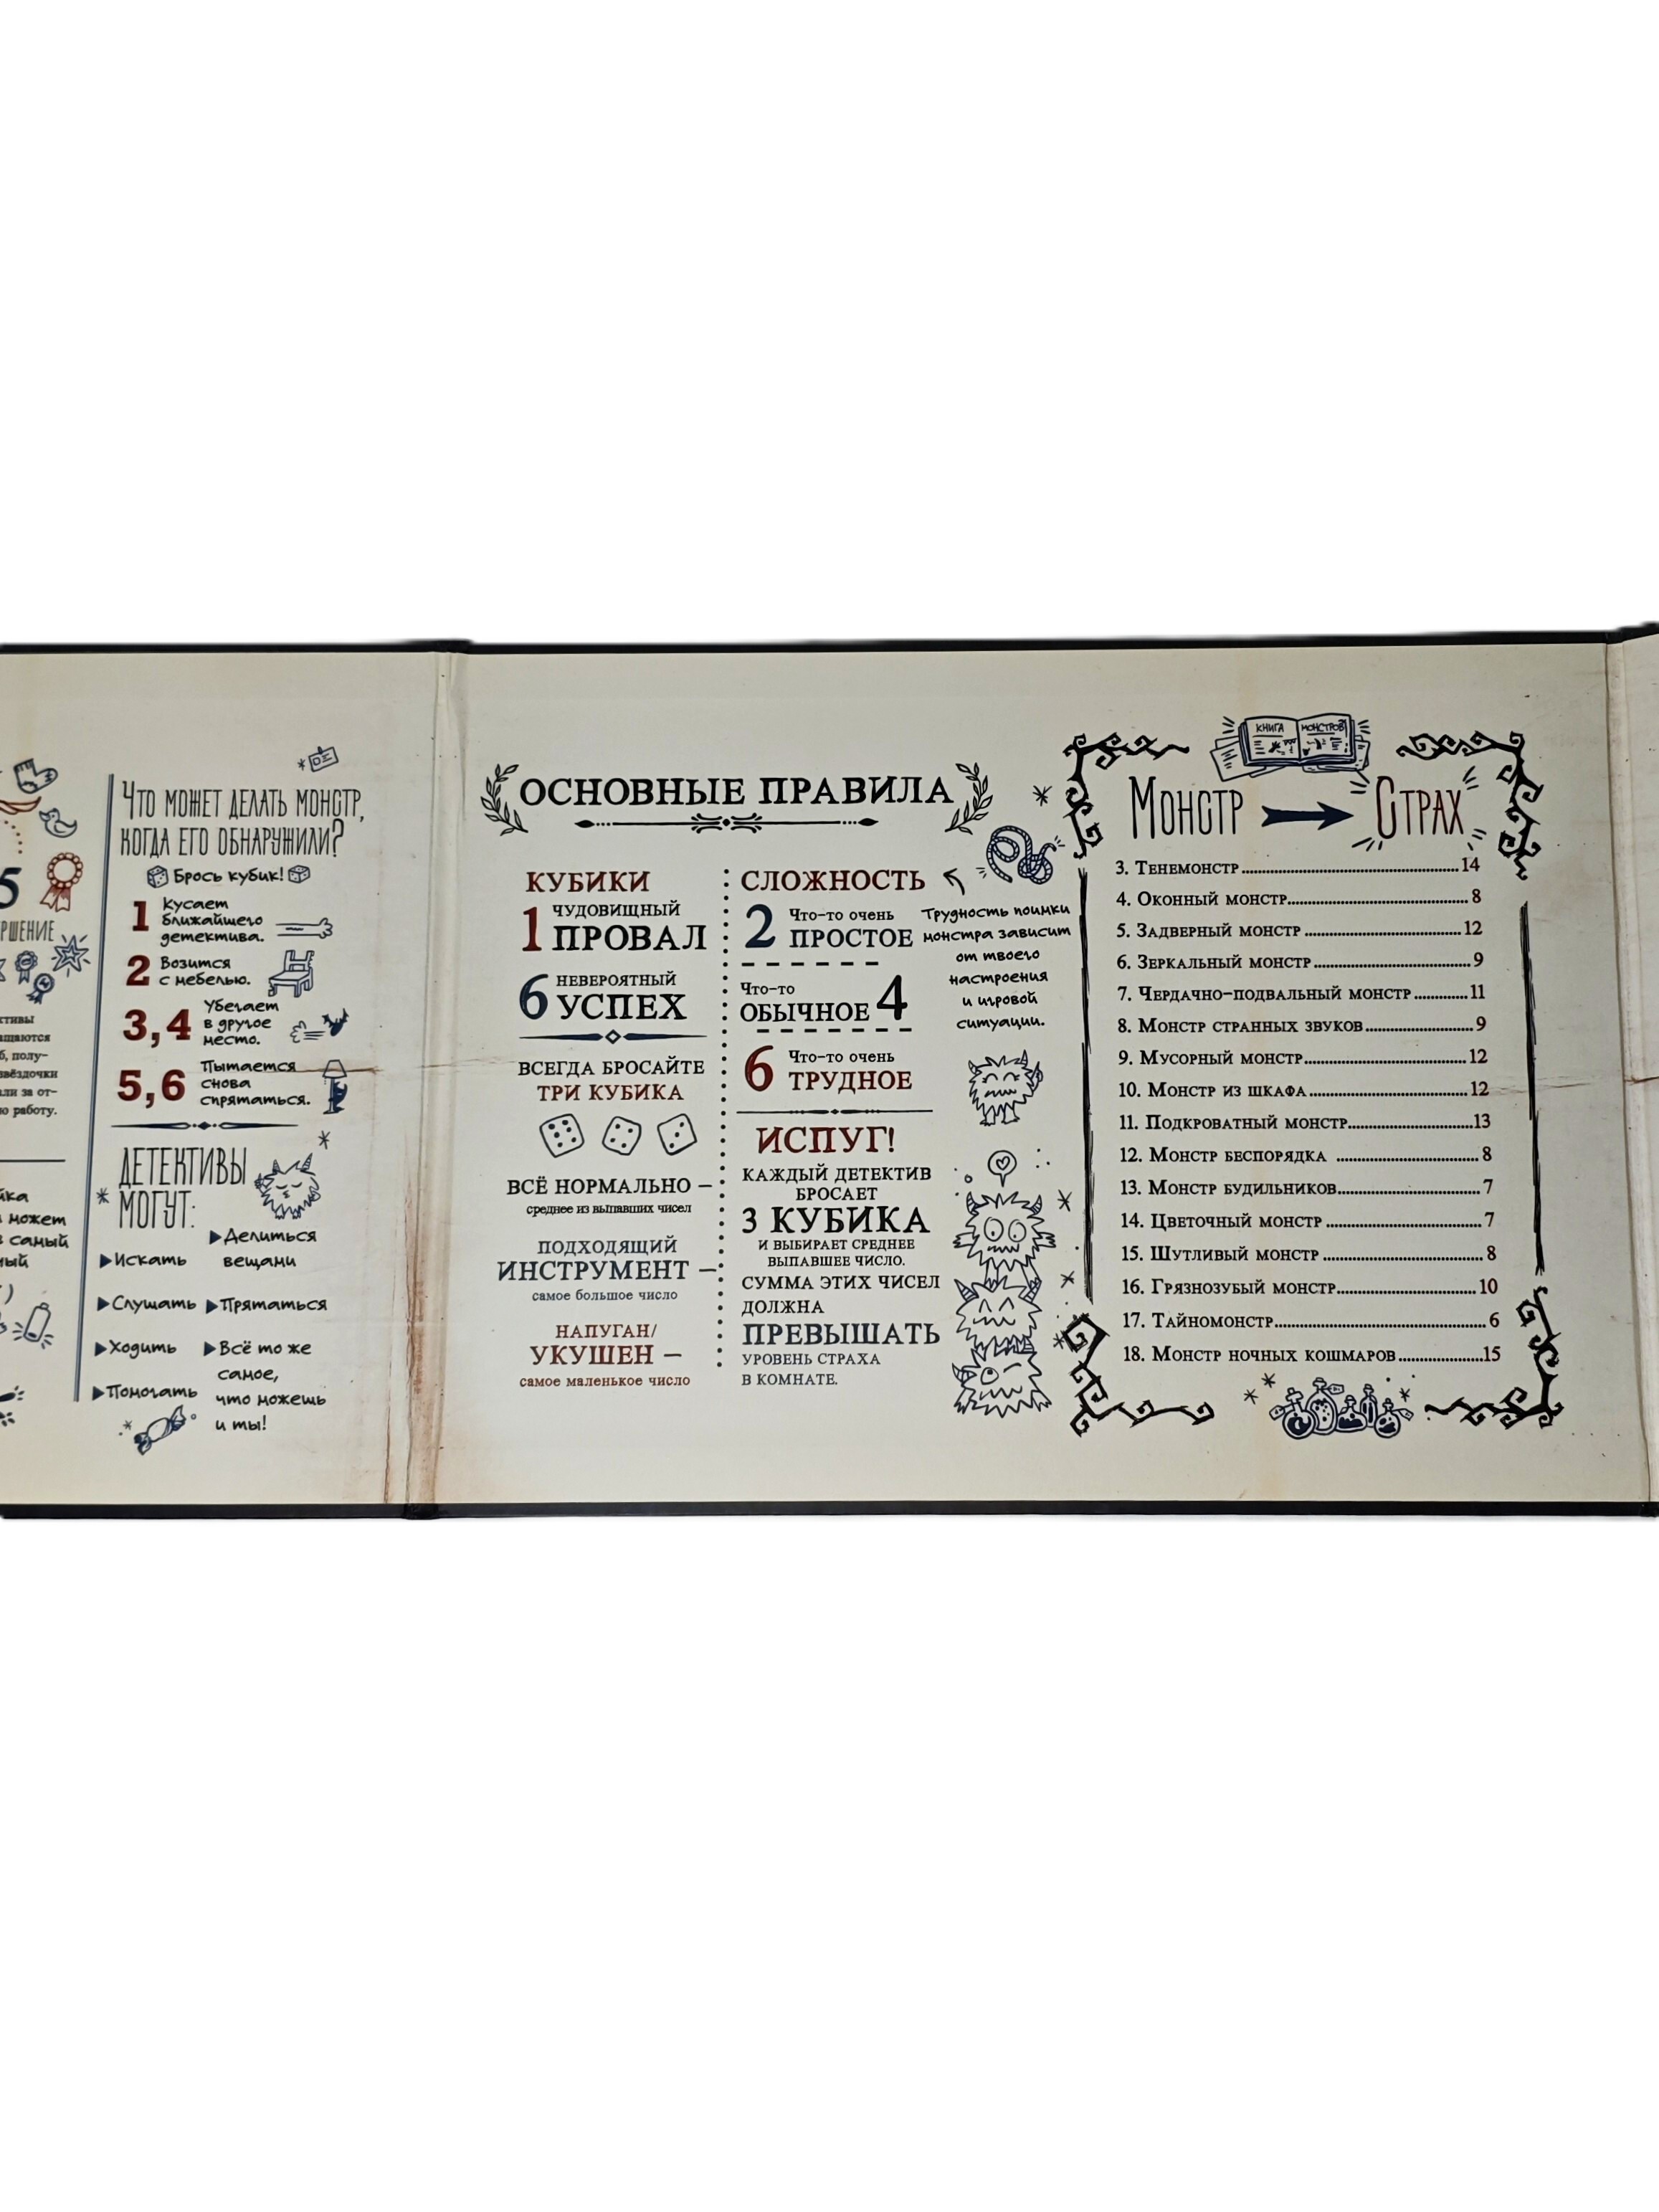 5
РШЕНИЕ
б, полу-
звёздочки
ли за от-
ю работу.
может
самый
Что может делать монстр,
когда его обнаружили?
Брось кубик!
1 Кусает
ближайшего
детектива.
2 Возится
с мебелью.
3,4 Убегает
в другое
место.
5,6 Пытается
снова
спрятаться.
Детективы
могут:
Искать
Слушать
Ходить
Помогать
Делиться
вещами
Прятаться
Всё то же
самое,
что можешь
и ты!
ОСНОВНЫЕ ПРАВИЛА
КУБИКИ
1 ЧУДОВИЩНЫЙ
ПРОВАЛ
6 НЕВЕРОЯТНЫЙ
УСПЕХ
ВСЕГДА БРОСАЙТЕ
ТРИ КУБИКА
ВСЁ НОРМАЛЬНО –
среднее из выпавших чисел
ПОДХОДЯЩИЙ
ИНСТРУМЕНТ –
самое большое число
НАПУГАН/
УКУШЕН –
самое маленькое число
СЛОЖНОСТЬ
2 Что-то очень
ПРОСТОЕ
Что-то
ОБЫЧНОЕ 4
6 Что-то очень
ТРУДНОЕ
Трудность поимки
монстра зависит
от твоего
настроения
и игровой
ситуации.
ИСПУГ!
КАЖДЫЙ ДЕТЕКТИВ
БРОСАЕТ
3 КУБИКА
И ВЫБИРАЕТ СРЕДНЕЕ
ВЫПАВШЕЕ ЧИСЛО.
СУММА ЭТИХ ЧИСЕЛ
ДОЛЖНА
ПРЕВЫШАТЬ
УРОВЕНЬ СТРАХА
В КОМНАТЕ.
КНИГА МОНСТРОВ
Монстр Страх
3. Тенемонстр 14
4. Оконный монстр 8
5. Задверный монстр 12
6. Зеркальный монстр 9
7. Чердачно-подвальный монстр 11
8. Монстр странных звуков 9
9. Мусорный монстр 12
10. Монстр из шкафа 12
11. Подкроватный монстр 13
12. Монстр беспорядка 8
13. Монстр будильников 7
14. Цветочный монстр 7
15. Шутливый монстр 8
16. Грязнозубый монстр 10
17. Тайномонстр 6
18. Монстр ночных кошмаров 15